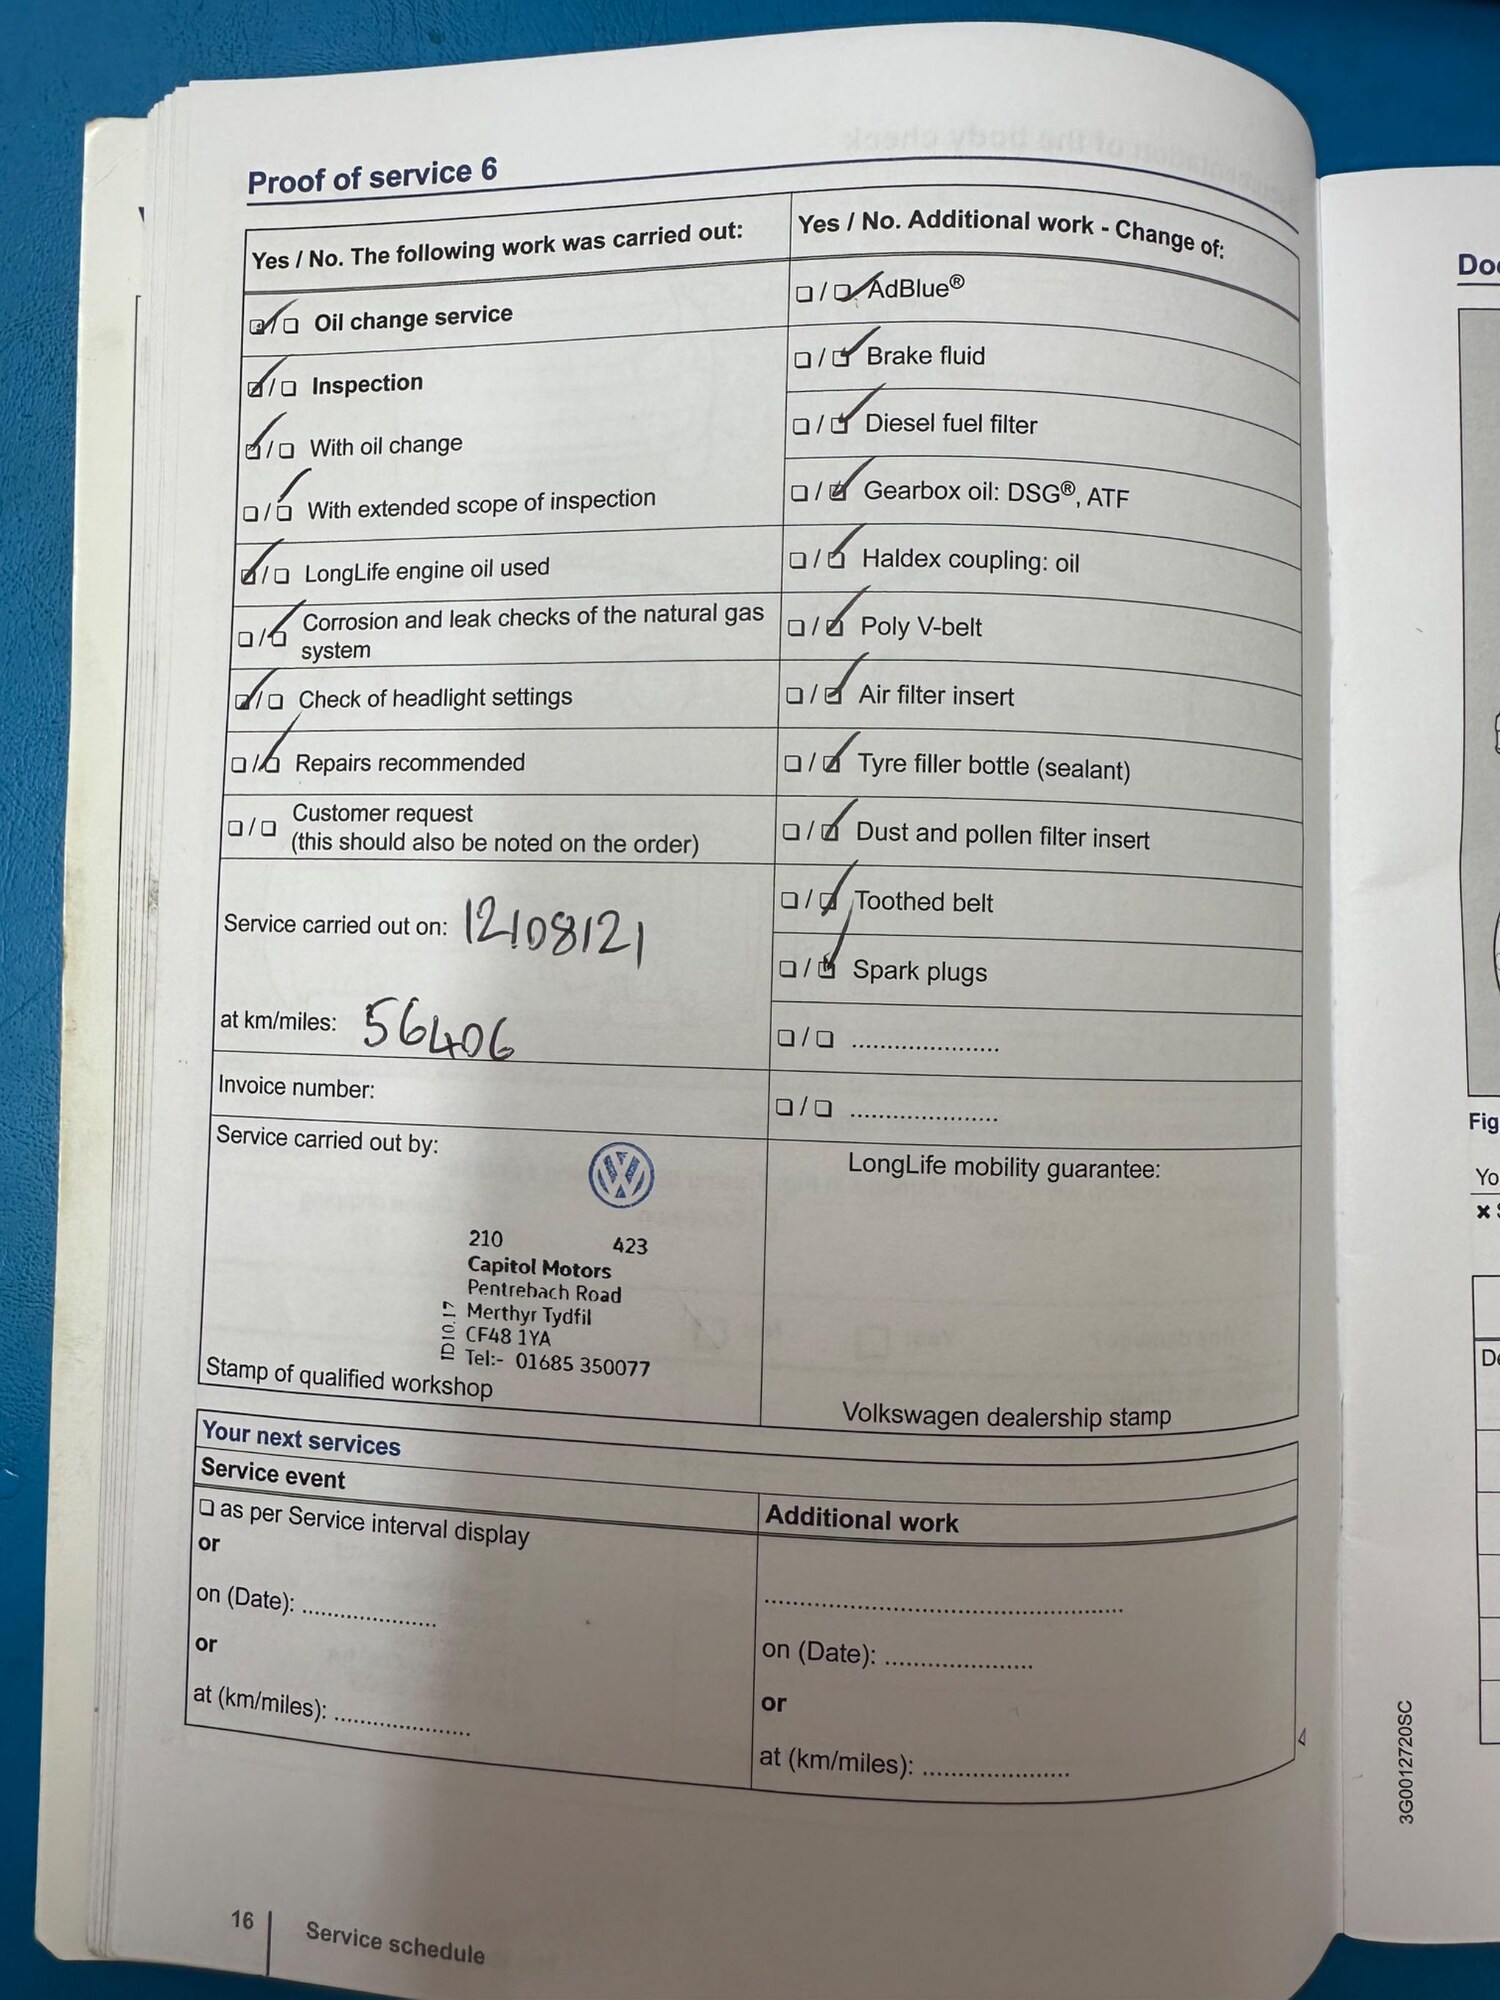 Proof of service 6
Yes / No. The following work was carried out:
Oil change service
Inspection
With oil change
With extended scope of inspection
LongLife engine oil used
Corrosion and leak checks of the natural gas
system
Check of headlight settings
Repairs recommended
Customer request
(this should also be noted on the order)
Service carried out on: 12/08/21
at km/miles: 56406
Invoice number:
Service carried out by:
210 423
Capitol Motors
Pentrebach Road
Merthyr Tydfil
CF48 1YA
Tel:- 01685 350077
ID10.17
Stamp of qualified workshop
Yes / No. Additional work - Change of:
AdBlue®
Brake fluid
Diesel fuel filter
Gearbox oil: DSG®, ATF
Haldex coupling: oil
Poly V-belt
Air filter insert
Tyre filler bottle (sealant)
Dust and pollen filter insert
Toothed belt
Spark plugs
.....................
.....................
LongLife mobility guarantee:
Volkswagen dealership stamp
Your next services
Service event
as per Service interval display
or
on (Date): ...................
or
at (km/miles): ...................
Additional work
..................................................
on (Date): .....................
or
at (km/miles): .....................
16 Service schedule
3G0012720SC
Fig
Yo